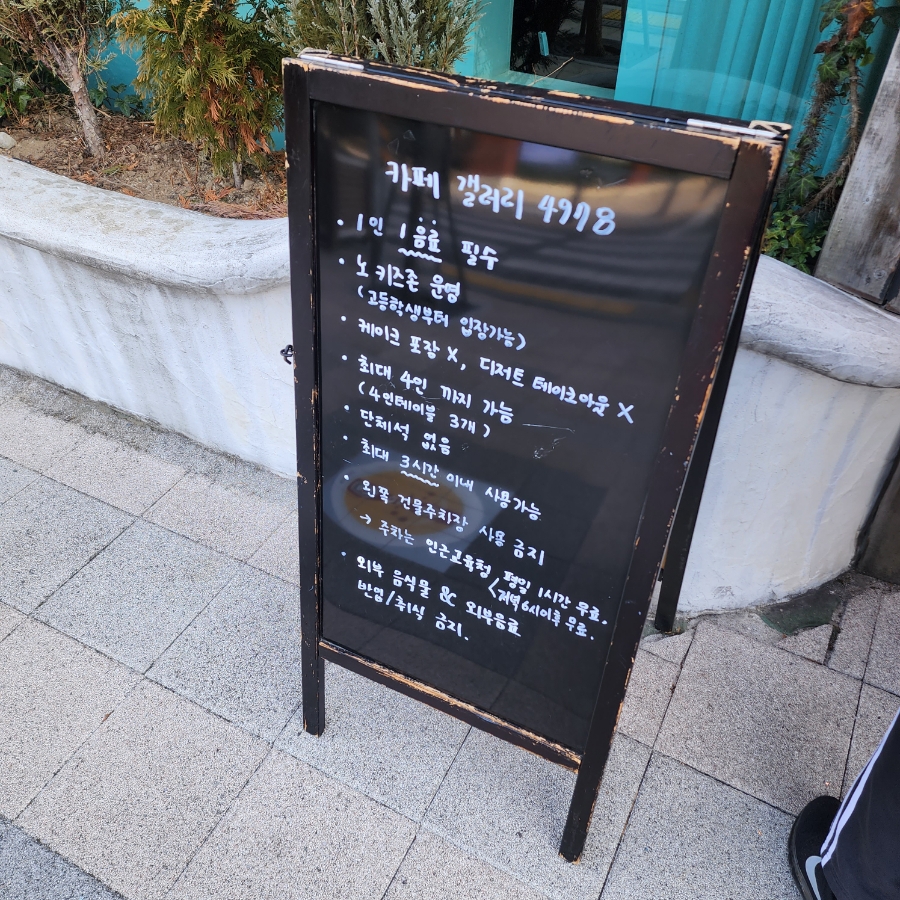 카페 갤러리 4978
· 1인 1음료 필수
· 노키즈존 운영
(고등학생부터 입장가능)
· 케이크 포장 X, 디저트 테이크아웃 X
· 최대 4인 까지 가능
(4인테이블 3개)
· 단체석 없음
· 최대 3시간 이내 사용가능
· 왼쪽 건물주차장 사용 금지
→ 주차는 인근교육청 평일 1시간 무료.
<저녁 6시이후 무료.
· 외부 음식물 & 외부음료
반입/취식 금지.